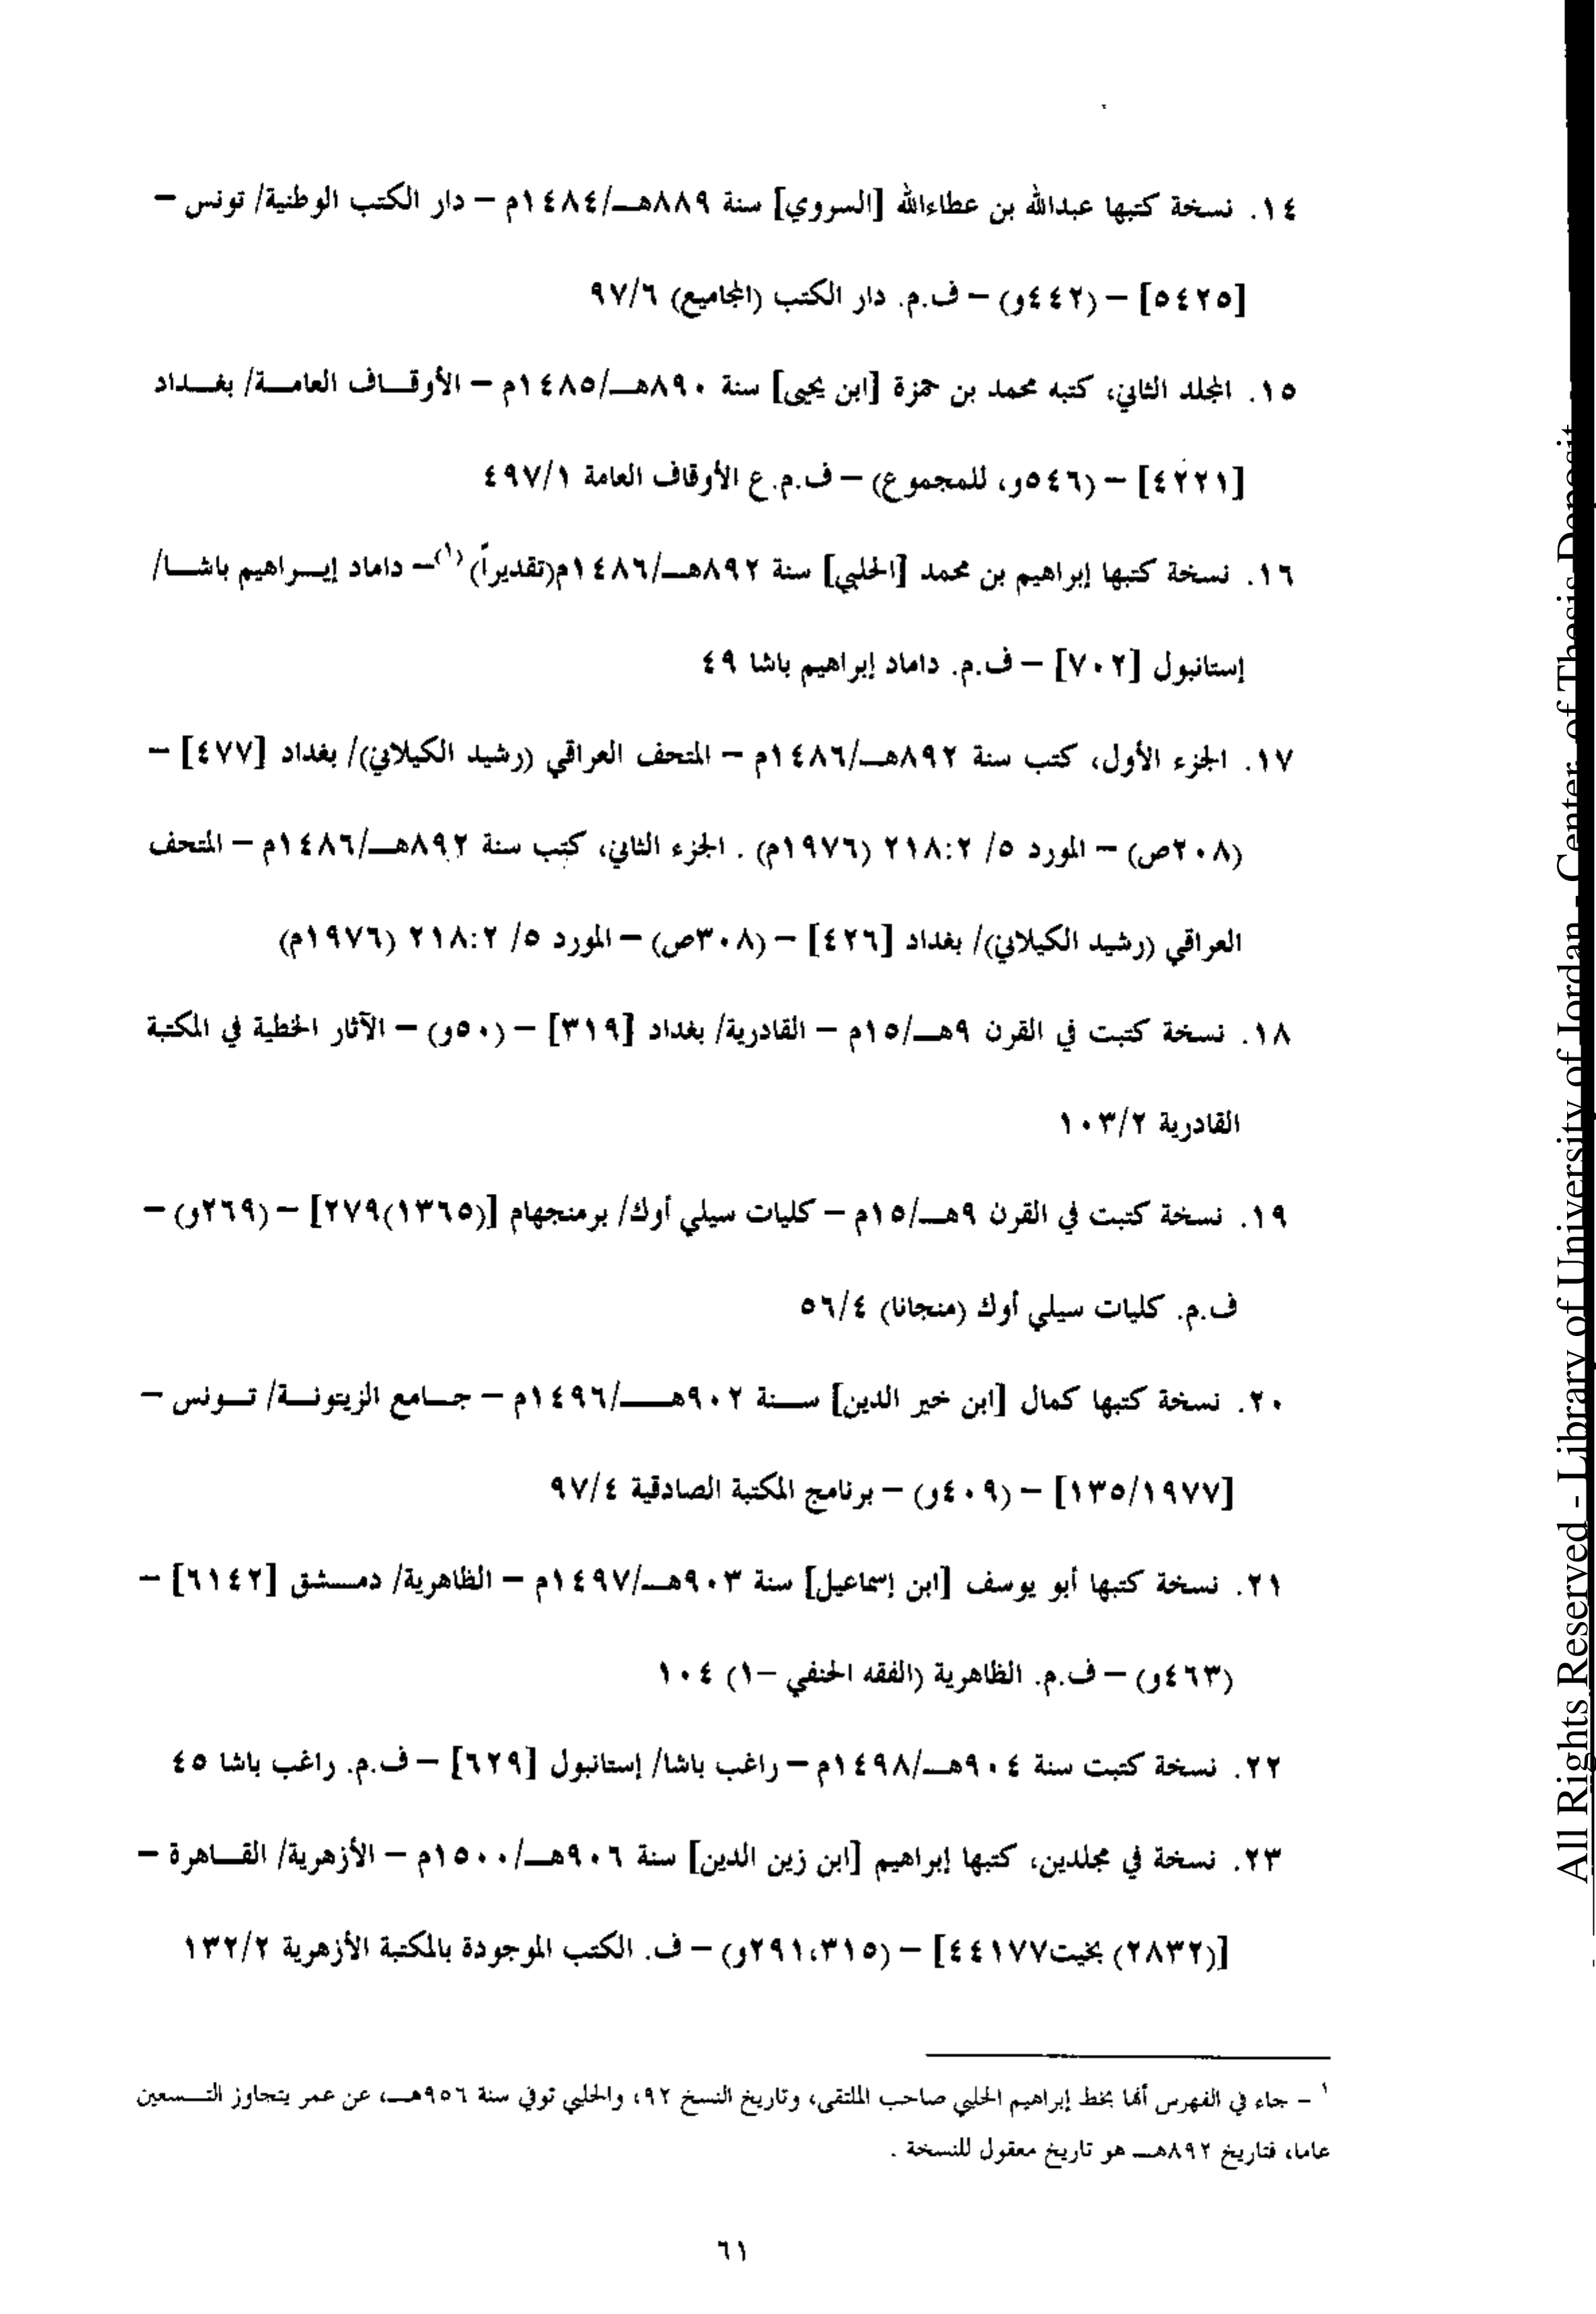 ١٤. نسخة كتبها عبدالله بن عطاءالله [السروي] سنة ٨٨٩هـ/١٤٨٤م – دار الكتب الوطنية/ تونس –
[٥٤٢٥] – (٤٤٢و) – ف.م. دار الكتب (المجاميع) ٩٧/٦
١٥. المجلد الثاني، كتبه محمد بن حمزة [ابن يحيى] سنة ٨٩٠هـ/١٤٨٥م – الأوقاف العامة/ بغداد
[٤٢٢١] – (٥٤٦و، للمجموع) – ف.م.ع الأوقاف العامة ٤٩٧/١
١٦. نسخة كتبها إبراهيم بن محمد [الحلبي] سنة ٨٩٢هـ/١٤٨٦م(تقديراً)(١)– داماد إبراهيم باشا/
إستانبول [٧٠٢] – ف.م. داماد إبراهيم باشا ٤٩
١٧. الجزء الأول، كتب سنة ٨٩٢هـ/١٤٨٦م – المتحف العراقي (رشيد الكيلاني)/ بغداد [٤٧٧] –
(٢٠٨ص) – المورد ٥/ ٢١٨:٢ (١٩٧٦م) . الجزء الثاني، كتب سنة ٨٩٢هـ/١٤٨٦م – المتحف
العراقي (رشيد الكيلاني)/ بغداد [٤٢٦] – (٣٠٨ص) – المورد ٥/ ٢١٨:٢ (١٩٧٦م)
١٨. نسخة كتبت في القرن ٩هـ/١٥م – القادرية/ بغداد [٣١٩] – (٥٠و) – الآثار الخطية في المكتبة
القادرية ١٠٣/٢
١٩. نسخة كتبت في القرن ٩هـ/١٥م – كليات سيلي أوك/ برمنجهام [(١٣٦٥)٢٧٩] – (٢٦٩و) –
ف.م. كليات سيلي أوك (منجانا) ٥٦/٤
٢٠. نسخة كتبها كمال [ابن خير الدين] سنة ٩٠٢هـ/١٤٩٦م – جامع الزيتونة/ تونس –
[١٣٥/١٩٧٧] – (٤٠٩و) – برنامج المكتبة الصادقية ٩٧/٤
٢١. نسخة كتبها أبو يوسف [ابن إسماعيل] سنة ٩٠٣هـ/١٤٩٧م – الظاهرية/ دمشق [٦١٤٢] –
(٤٦٣و) – ف.م. الظاهرية (الفقه الحنفي –١) ١٠٤
٢٢. نسخة كتبت سنة ٩٠٤هـ/١٤٩٨م – راغب باشا/ إستانبول [٦٢٩] – ف.م. راغب باشا ٤٥
٢٣. نسخة في مجلدين، كتبها إبراهيم [ابن زين الدين] سنة ٩٠٦هـ/١٥٠٠م – الأزهرية/ القاهرة –
[(٢٨٣٢) بخيت٤٤١٧٧] – (٢٩١،٣١٥و) – ف. الكتب الموجودة بالمكتبة الأزهرية ١٣٢/٢
١ – جاء في الفهرس أنها بخط إبراهيم الحلبي صاحب الملتقى، وتاريخ النسخ ٩٢، والحلبي توفي سنة ٩٥٦هـ، عن عمر يتجاوز التسعين
عاما، فتاريخ ٨٩٢هـ هو تاريخ معقول للنسخة .
٦١
All Rights Reserved - Library of University of Jordan - Center of Thesis Deposit